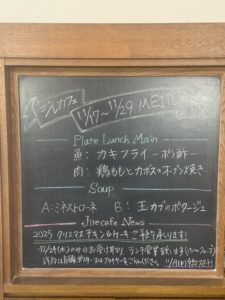 ジルカフェ
11/17〜11/29 MENU
Plate Lunch Main
魚: カキフライ ーポン酢ー
肉: 鶏ももとカボスのオーブン焼き
Soup
A:ミネストローネ B:玉カブのポタージュ
Jirucafe News
2025 クリスマスチキン&ケーキ ご予約承ります!
のみお受け取り ランチ営業致します